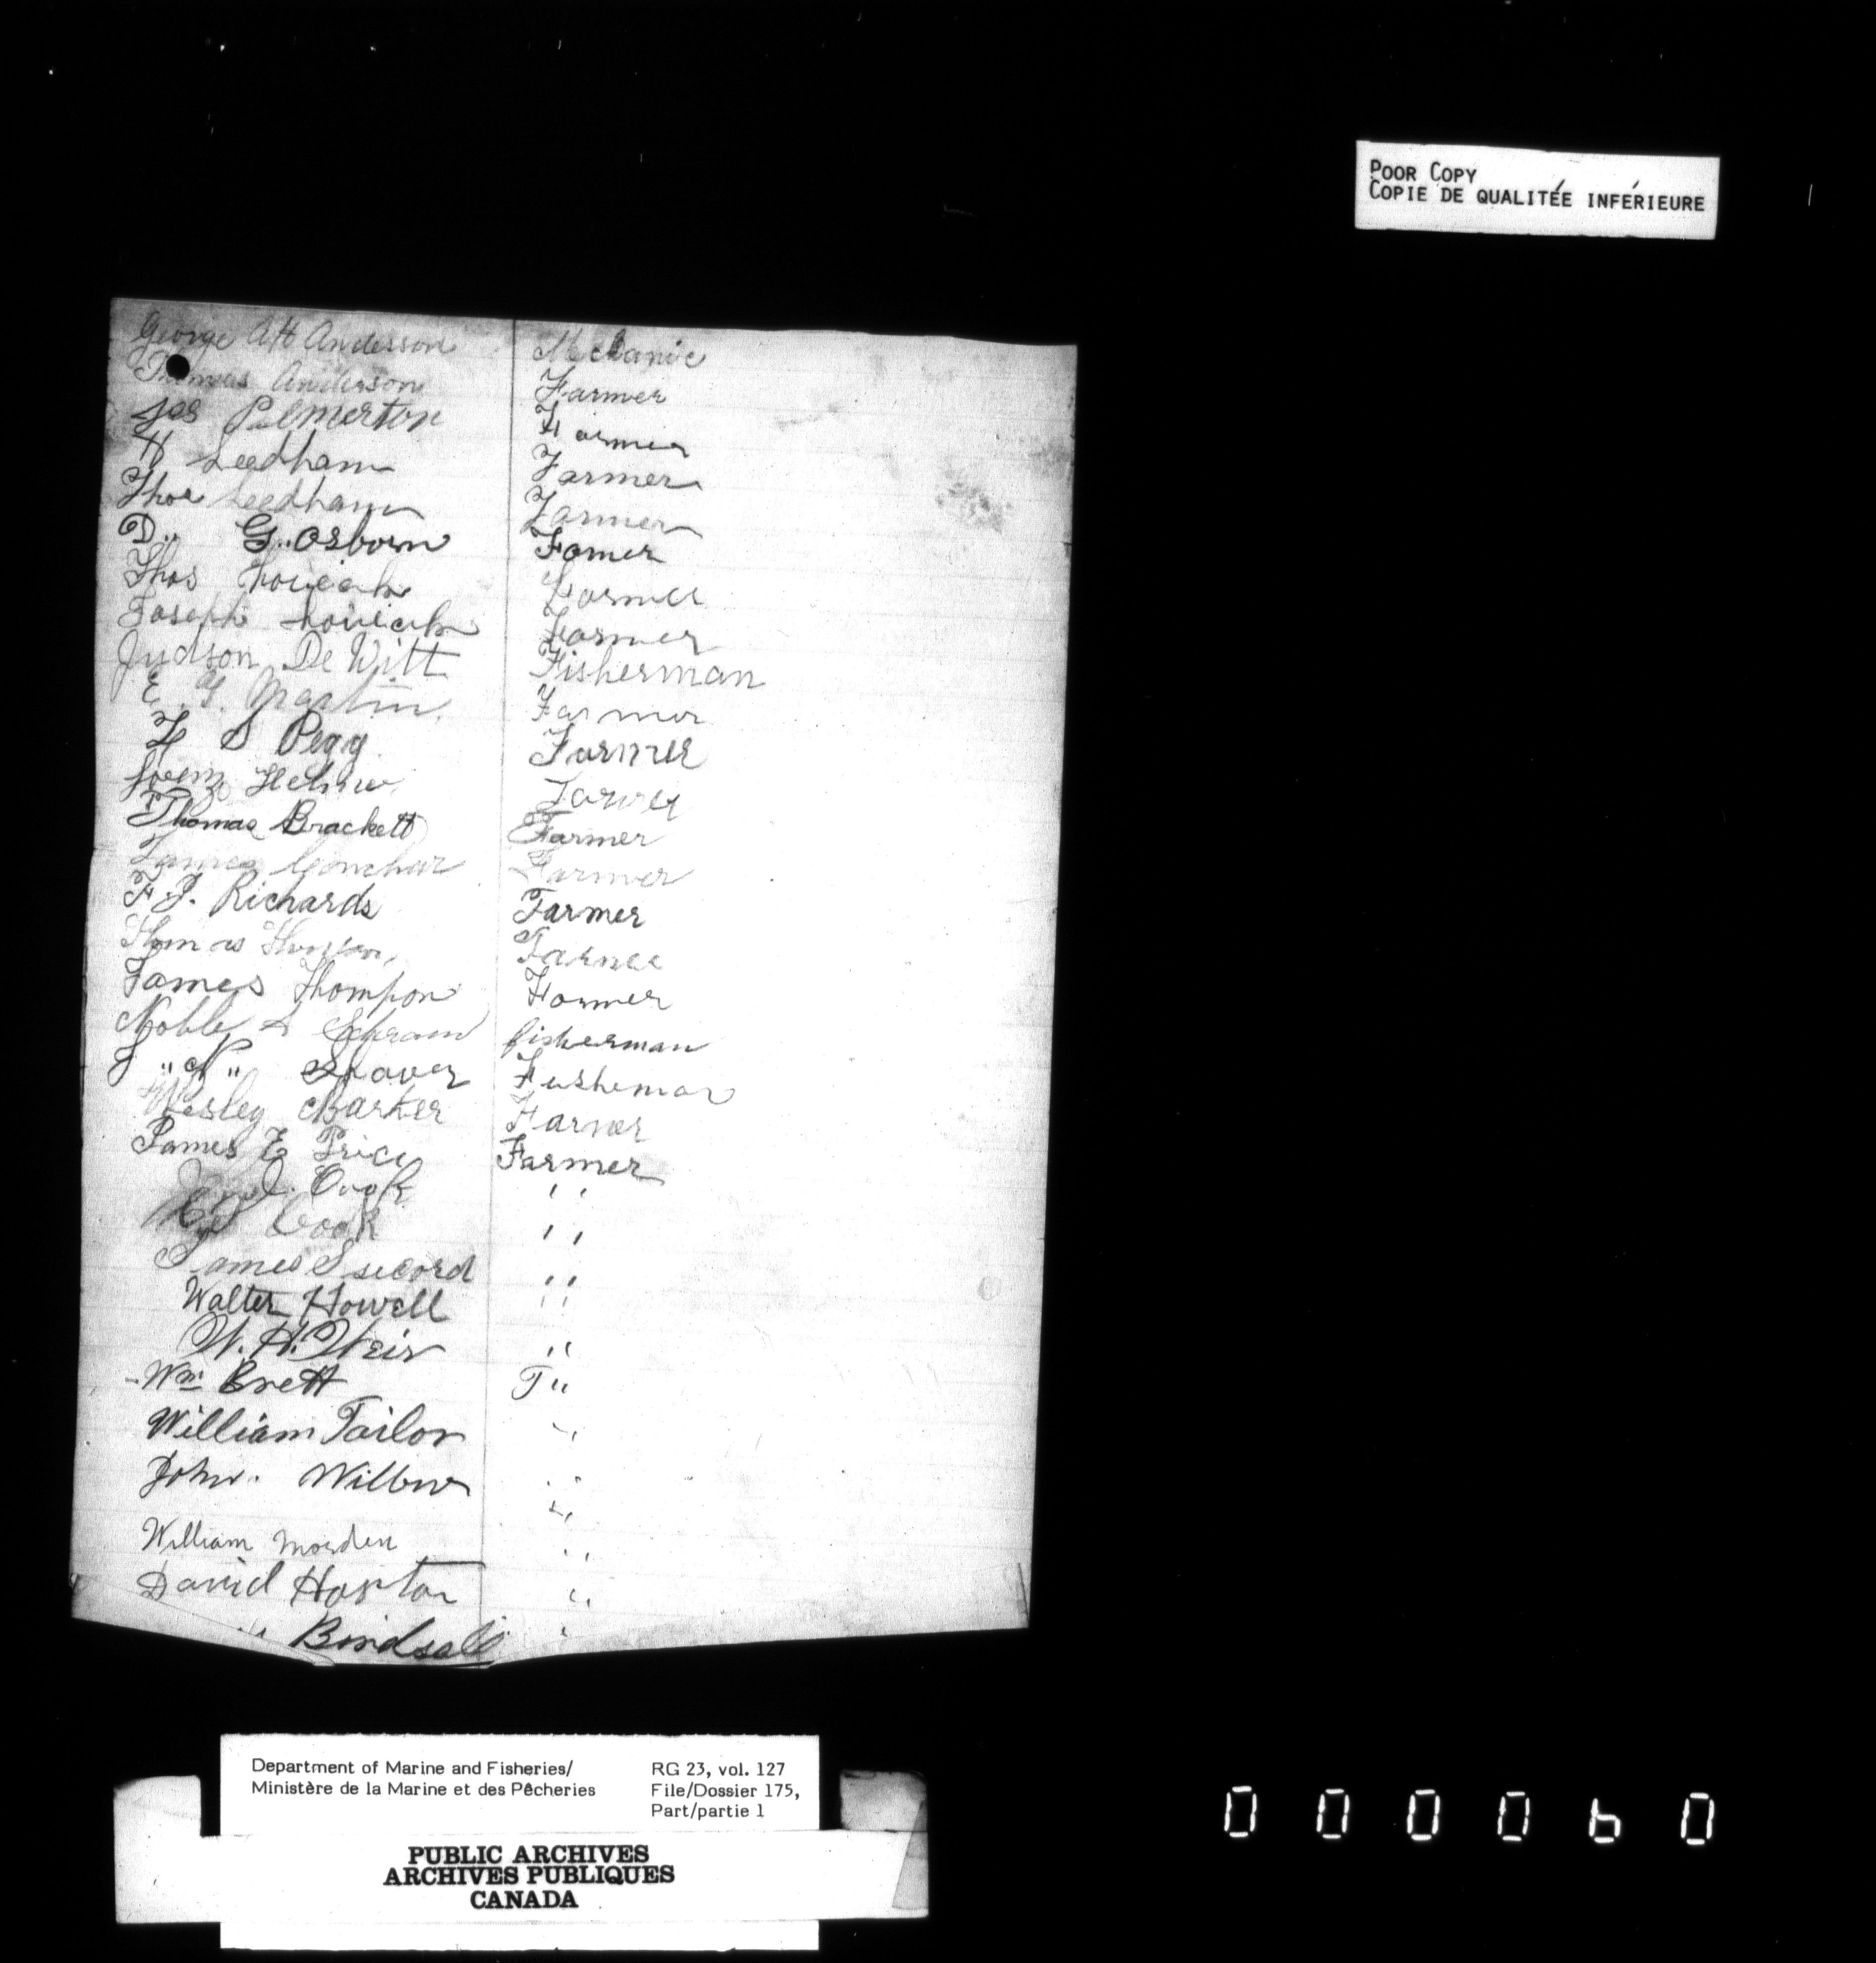 POOR COPY
COPIE DE QUALITÉE INFÉRIEURE
George AH Anderson Mechanic
Thomas Anderson Farmer
Jas Palmerton Farmer
H Leedham Farmer
Thos Leedham Farmer
D.. G.. Osborn Fomer
Thos Farmer
Joseph Farmer
Judson De Witt Fisherman
E. Y. Martin. Farmer
H S Pegg Farmer
Farmer
Thomas Brackett Farmer
James Farmer
F. J. Richards Farmer
Thomas Farmer
James Thompson Farmer
Noble fisherman
J "N" Shaver Fusheman
Wesley Barker Farmer
James E Price Farmer
J. Cook " "
Cook " "
James S secord " "
Walter Howell " "
W. H. Weir "
Wm Brett F "
William Tailor "
John. Wilbur "
William Morden "
David Horton "
Birdsall "
Department of Marine and Fisheries/
Ministère de la Marine et des Pêcheries
RG 23, vol. 127
File/Dossier 175,
Part/partie 1
PUBLIC ARCHIVES
ARCHIVES PUBLIQUES
CANADA
000060